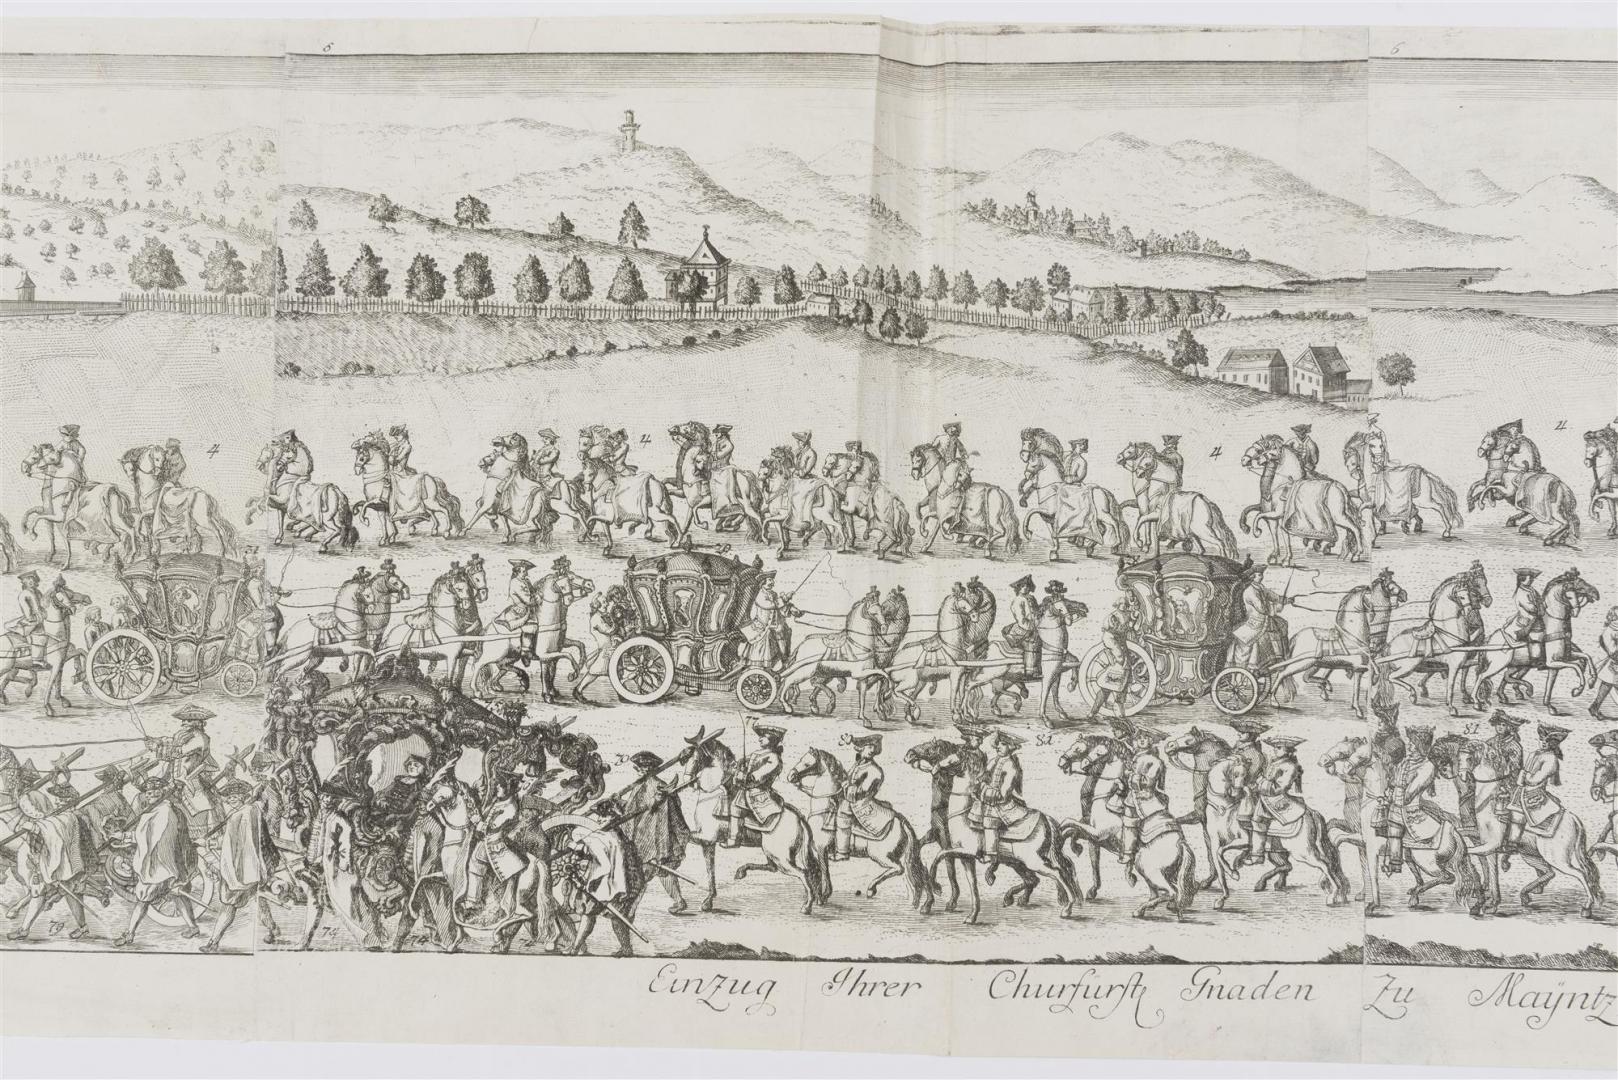 5
6
4
4
4
4
70
77
81
81
81
79
74
74
72
Einzug Ihrer Churfürstl Gnaden Zu Maÿntz